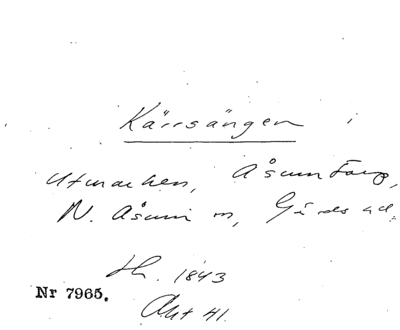 Kärrsängen i
Utmarken, Åsumtorp,
N. Åsum sn, Gärds hd.
Hr. 1843
Nr 7965.
Akt 41.